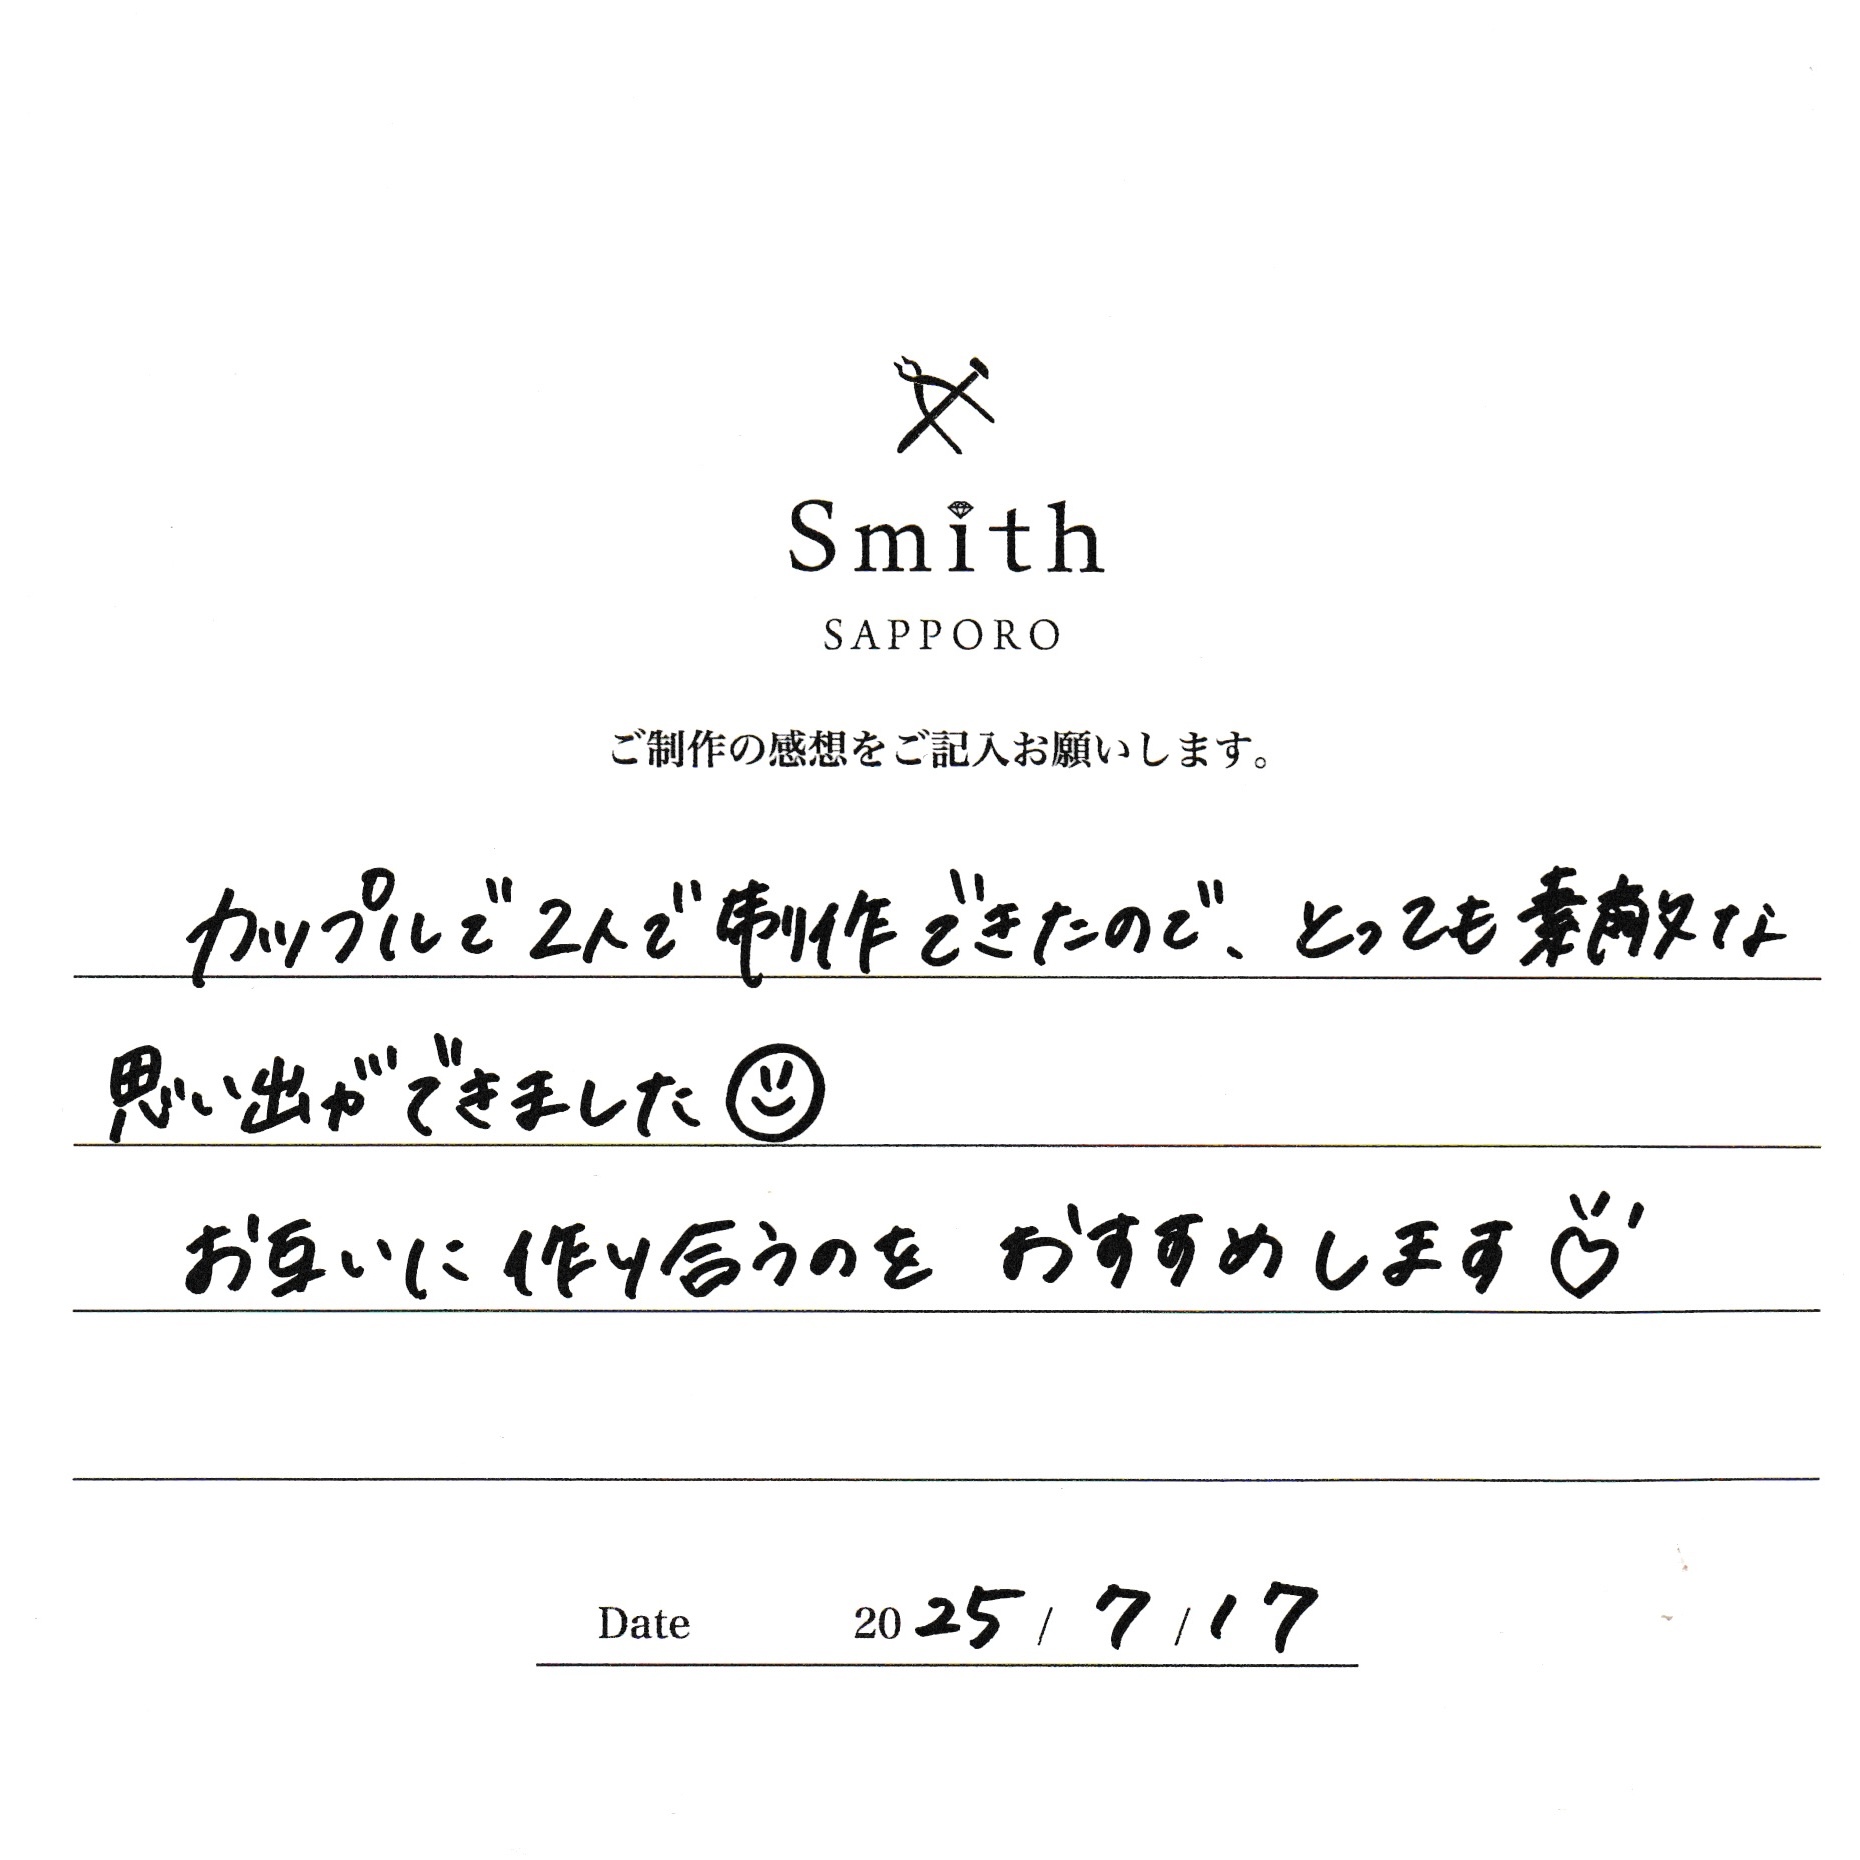 Smith
SAPPORO
ご制作の感想をご記入お願いします。
カップルで2人で制作できたので、とっても素敵な
思い出ができました☺
お互いに作り合うのを おすすめします♡
Date 2025/7/17